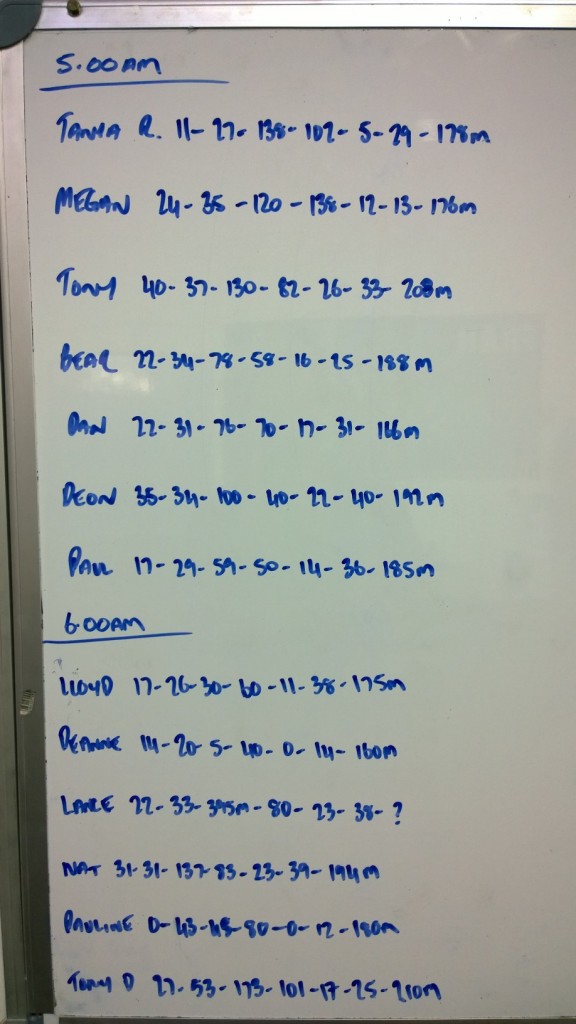 5.00AM
TANIA R. 11- 27- 138- 102- 5- 29 - 178m
MEGAN 24 - 35 - 120 - 138 - 12 - 13 - 176m
TONY 40 - 37 - 130 - 82 - 26 - 33 - 208m
BEAR 22 - 34 - 78 - 58 - 16 - 25 - 188m
DAN 22 - 31 - 76 - 70 - 17 - 31 - 166m
DEON 35 - 34 - 100 - 40 - 22 - 40 - 192m
PAUL 17 - 29 - 59 - 50 - 14 - 36 - 185m
6.00AM
LLOYD 17 - 26 - 30 - 60 - 11 - 38 - 175m
DEANNE 14 - 20 - 5 - 40 - 0 - 14 - 160m
LANCE 22 - 33 - 395m - 80 - 23 - 38 - ?
NAT 31 - 31 - 137 - 83 - 23 - 39 - 194m
PAULINE 0 - 43 - 45 - 80 - 0 - 12 - 180m
TONY D 27 - 53 - 173 - 101 - 17 - 25 - 210m